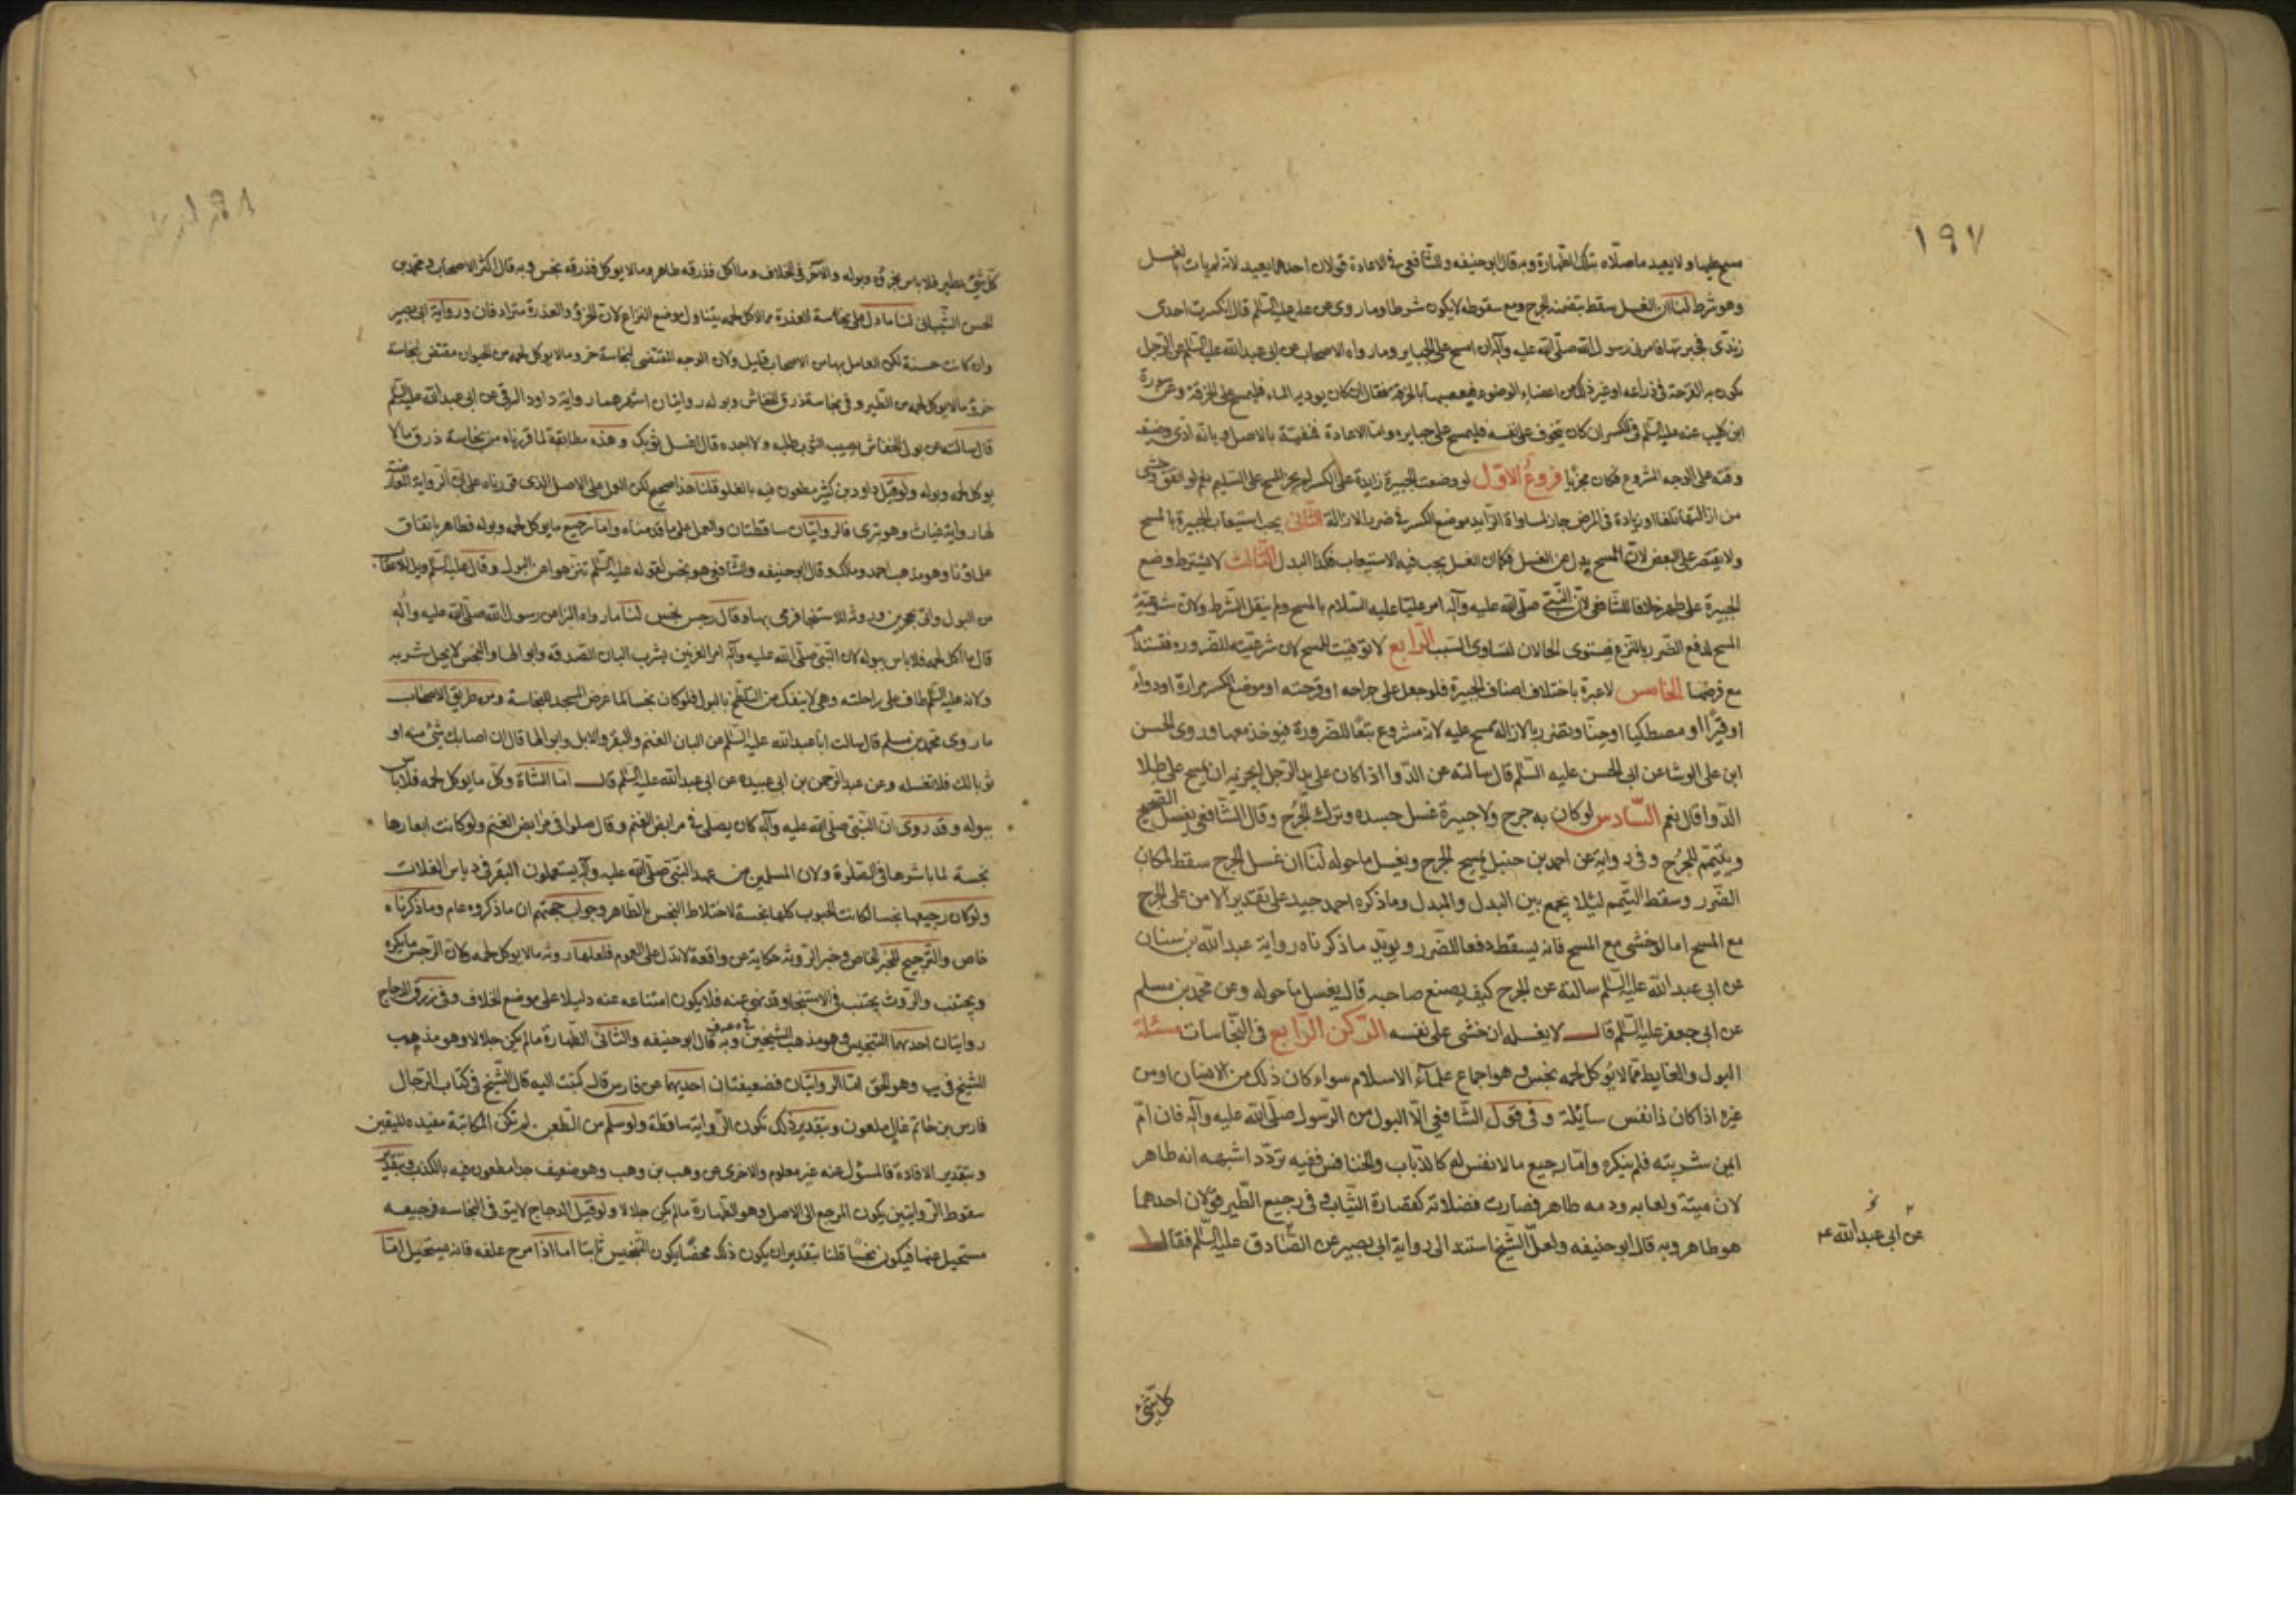 ١٩٧
مسح عليها ولا يعيد ما صلاه بتلك الطهارة وبه قال ابو حنيفه وللشافعي في الاعادة قولان احدهما يعيد لانه لم يات بالغسل
وهو شرط لنا ان الغسل سقط بتضمنه الجرح ومع سقوطه لا يكون شرطا وما روى عن علي عليه السلم قال انكسرت احدى
زندي فجبرتها فامرني رسول الله صلى الله عليه وآله ان امسح على الجباير وما رواه الاصحاب عن ابي عبد الله عليه السلم عن الرجل
تكون به القرحة في ذراعه او غير ذلك من اعضاء الوضوء فيعصبها بالخرقة فقال ان كان يوذيه الماء فليمسح على الخرقة وعن
ابن كليب عنه عليه السلم في الكسر ان كان يتخوف على نفسه فليمسح على جبايره واما الاعادة فمنفية بالاصل وبانه ادى وضيفة
وقته على الوجه المشروع فكان مجزيا فروع الاول لو وضعت الجبيرة زايدة على الكسر لم يجز المسح على السليم نعم لو اتفق وخشى
من ازالتها تلفا او زيادة في المرض جاز لمساواة الزايد موضع الكسر في ضرر الازالة الثاني يجب استيعاب الجبيرة بالمسح
ولا يقتصر على البعض لان المسح بدل من الغسل فكما ان الغسل يجب فيه الاستيعاب فكذا البدل الثالث لا يشترط وضع
الجبيرة على طهر خلافا للشافعي لان النبي صلى الله عليه وآله امر عليا عليه السلام بالمسح ولم ينقل الشرط ولان شرعية
المسح لدفع الضرر بالنزع فيستوى الحالان لتساوى السبب الرابع لا توقيت للمسح لان شرعيته للضروره فيستدام
مع فرضها الخامس لا عبرة باختلاف اصناف الجبيرة فلو جعل على جراحه او قرحته او موضع الكسر مرارة او دواء
او قيرا او مصطكيا او حنا وتضرر بالازاله مسح عليه لانه مشروع تبعا للضرورة فيوخذ معها وروى الحسن
ابن علي الوشا عن ابي الحسن عليه السلم قال سالته عن الدوا اذا كان على يد الرجل ايجزيه ان يمسح على طلا
الدوا قال نعم السادس لو كان به جرح ولا جبيرة غسل جسده وترك الجرح وقال الشافعي يغسل الصحيح
ويتيمم للجرح وفي رواية عن احمد بن حنبل يمسح الجرح ويغسل ما حوله لنا ان غسل الجرح سقط لمكان
الضرر وسقط التيمم لئلا يجمع بين البدل والمبدل وما ذكره احمد جيد على تقدير الامن على الجرح
مع المسح اما لو خشى مع المسح فانه يسقط دفعا للضرر ويويد ما ذكرناه رواية عبد الله بن سنان
عن ابي عبد الله عليه السلم سالته عن الجرح كيف يصنع صاحبه قال يغسل ما حوله وعن محمد بن مسلم
عن ابي جعفر عليه السلم قال لا يغسله ان خشى على نفسه الركن الرابع في النجاسات مسئلة
البول والغايط مما لا يؤكل لحمه نجس وهو اجماع علماء الاسلام سواء كان ذلك من الانسان او من
غيره اذا كان ذا نفس سائلة وفي قول الشافعي الا البول من الرسول صلى الله عليه وآله فان ام
ايمن شربته فلم ينكره واما رجيع ما لا نفس له كالذباب والخنافس ففيه تردد اشبهه انه طاهر
لان ميتة ولعابه ودمه طاهر فصارت فضلاته كعصارة النبات وفي رجيع الطير قولان احدهما
هو طاهر وبه قال ابو حنيفه ولعل الشيخ استند الى رواية ابي بصير عن الصادق عليه السلم فقال
عن ابي عبد الله عم
كل شئ
كل شئ يطير فلا باس بخرؤه وبوله والآخر في الخلاف وما اكل فذرقه طاهر وما لا يوكل فذرقه نجس وبه قال اكثر الاصحاب ومحمد بن
الحسن الشيباني لنا ما دل على نجاسة العذرة مما لا يوكل لحمه يتناول موضع النزاع لان الخرؤ والعذرة مترادفان ورواية ابي بصير
وان كانت حسنة لكن العامل بها من الاصحاب قليل ولان الوجه المقتضى لنجاسة خرو ما لا يوكل لحمه من الحيوان مقتض لنجاسة
خرؤ ما لا يوكل لحمه من الطير وفي نجاسة ذرق الخفاش وبوله روايتان اشهرهما رواية داود الرقي عن ابي عبد الله عليه السلم
قال سالته عن بول الخفاش يصيب الثوب اطلبه ولا اجده قال اغسل ثوبك وهذه مطابقة لما قررناه من نجاسة ذرق ما لا
يوكل لحمه وبوله ولو قيل داود بن كثير مطعون فيه بالغلو قلنا هذا صحيح لكن العمل على الاصل الذى قررناه على ان الرواية المعارضة
لها رواية غياث وهو بترى فالروايتان ساقطتان والعمل على ما قدمناه واما رجيع ما يوكل لحمه وبوله فطاهر باتفاق
علماؤنا وهو مذهب احمد وملك وقال ابو حنيفه والشافعي هو نجس لقوله عليه السلم تنزهوا من البول وقال عليه السلم ويل للاعقاب
من البول واتى بحجرين وروثة للاستنجا فرمى بها وقال رجس نجس لنا ما رواه البزا عن رسول الله صلى الله عليه وآله
قال ما اكل لحمه فلا باس ببوله لان النبي صلى الله عليه وآله امر العرنيين بشرب البان الصدقه وابوالها والنجس لا يحل شربه
ولانه عليه السلم طاف على راحلته وهى لا ينفك من التلطخ بالبول فلو كان نجسا لما عرض المسجد للنجاسة ومن طريق الاصحاب
ما روى محمد بن مسلم قال سالت ابا عبد الله عليه السلم عن البان الغنم والبقر والابل وابوالها قال ان اصابك شئ منه او
ثوبا لك فلا تغسله وعن عبد الرحمن بن ابي عبيده عن ابي عبد الله عليه السلم قال اما الشاة وكل ما يوكل لحمه فلا باس
ببوله وقد روى ان النبي صلى الله عليه وآله كان يصلي في مرابض الغنم وقال صلوا في مرابض الغنم ولو كانت ابعارها
نجسة لما باشرها في الصلوة ولان المسلمين من عهد النبي صلى الله عليه وآله يستعملون البقر في دياس الغلات
ولو كان رجيعها نجسا لكانت الحبوب كلها نجسة لاختلاط النجس بالطاهر وجواب حجتهم ان ما ذكروه عام وما ذكرناه
خاص والترجيح للخبر الخاص وخبر الروثة حكاية عن واقعة لا تدل على العموم فلعلها روثه ما لا يوكل لحمه ولان الرجس ما يكره
ويجتنب والروث يجتنب في الاستنجا وقد نهى عنه فلا يكون امتناعه عنه دليلا على موضع الخلاف وفي زرق الدجاج
روايتان احديهما التنجيس وهو مذهب الشيخين وبه قال ابو حنيفه والثاني الطهارة ما لم يكن جلالا وهو مذهب
الشيخ في يب وهو الحق اما الروايتان فضعيفتان احديهما عن فارس قال كتبت اليه قال الشيخ في كتاب الرجال
فارس بن حاتم غال ملعون وبتقدير ذلك تكون الرواية ساقطة ولو سلم من الطعن لم تكن المكاتبة مفيده لليقين
وبتقدير الافادة فالمسؤل عنه غير معلوم والاخرى عن وهب بن وهب وهو ضعيف جدا مطعون فيه بالكذب وبتقدير
سقوط الروايتين يكون المرجع الى الاصل وهو الطهارة ما لم يكن جلالا ولو قيل الدجاج لا يتوقى النجاسه فرجيعه
مستحيل عنها فيكون نجسا قلنا بتقدير ان يكون ذلك محضا يكون التنجيس ثابتا اما اذا مزج علفه فانه يستحيل اما